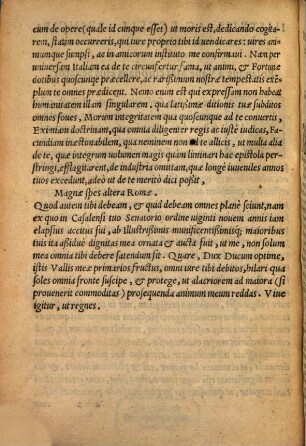 cum de opere (quale id cunque esset) ut moris est, dedicando cogita-
rem, statim occurreris, qui iure proprio tibi id uendicares: uires ani-
mumque sumpsi, ac in amicorum instituto me confirmaui. Nam per
uniuersam Italiam ea de te circunfertur fama, ut animi, & Fortunæ
dotibus quoscunque præcellere, ac rarissimum nostræ tempestatis exem-
plum te omnes prædicent. Nemo enim est qui expressam non habeat
humanitatem illam singularem. qua latissimæ ditionis tuæ subditos
omnes foues, Morum integritatem qua quoscunque ad te conuertis,
Eximiam doctrinam, qua omnia diligenter regis ac iustè iudicas, Fa-
cundiam inæstimabilem, qua neminem non allicis, ut multa alia
de te, quæ integrum uolumen magis quàm liminari hac epistola per-
stringi, efflagitarent, de industria omittam, quæ longè iuueniles annos
tuos excedunt, adeò ut de te meritò dici possit,
Magnæ spes altera Romæ.
Quod autem tibi debeam, & quid debeam omnes planè sciunt, nam
ex quo in Casalensi tuo Senatorio ordine uiginti nouem annis iam
elapsus accitus sui, ab Illustrißimis munificentißimisq; maioribus
tuis ita aßiduè dignitas mea ornata & aucta fuit, ut me, non solum
mea omnia tibi debere fatendum sit. Quare, Dux Ducum optime,
istis Vallis meæ primarios fructus, omni iure tibi debitos, hilari qua
soles omnia fronte suscipe, & protege, ut alacriorem ad maiora (si
prouenerit commoditas) prosequenda animum meum reddas. Viue
igitur, ut regnes.